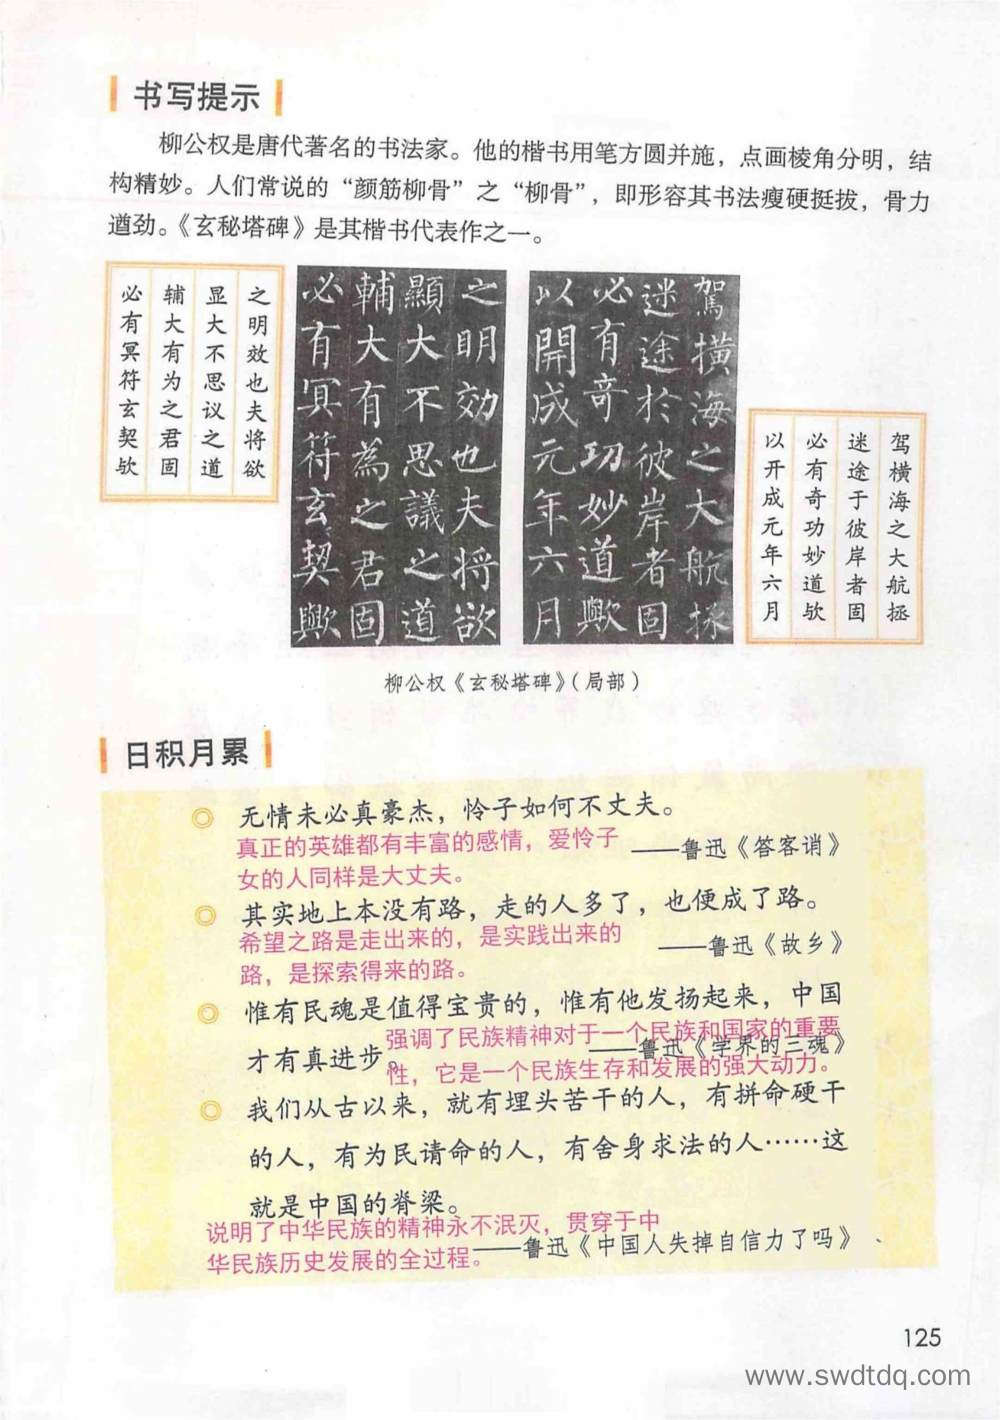 书写提示
柳公权是唐代著名的书法家。他的楷书用笔方圆并施，点画棱角分明，结
构精妙。人们常说的“颜筋柳骨”之“柳骨”，即形容其书法瘦硬挺拔，骨力
遒劲。《玄秘塔碑》是其楷书代表作之一。
之明效也夫将欲
显大不思议之道
辅大有为之君固
必有冥符玄契欤
之明効也夫将欲
顯大不思議之道
輔大有為之君固
必有冥符玄契歟
駕橫海之大航拯
迷途於彼岸者固
必有奇功妙道歟
以開成元年六月
驾横海之大航拯
迷途于彼岸者固
必有奇功妙道欤
以开成元年六月
柳公权《玄秘塔碑》（局部）
日积月累
◎ 无情未必真豪杰，怜子如何不丈夫。
真正的英雄都有丰富的感情，爱怜子
——鲁迅《答客诮》
女的人同样是大丈夫。
◎ 其实地上本没有路，走的人多了，也便成了路。
希望之路是走出来的，是实践出来的
——鲁迅《故乡》
路，是探索得来的路。
◎ 惟有民魂是值得宝贵的，惟有他发扬起来，中国
强调了民族精神对于一个民族和国家的重要
才有真进步。
——鲁迅《学界的三魂》
性，它是一个民族生存和发展的强大动力。
◎ 我们从古以来，就有埋头苦干的人，有拼命硬干
的人，有为民请命的人，有舍身求法的人……这
就是中国的脊梁。
说明了中华民族的精神永不泯灭，贯穿于中
华民族历史发展的全过程。
——鲁迅《中国人失掉自信力了吗》
125
www.swdtdq.com